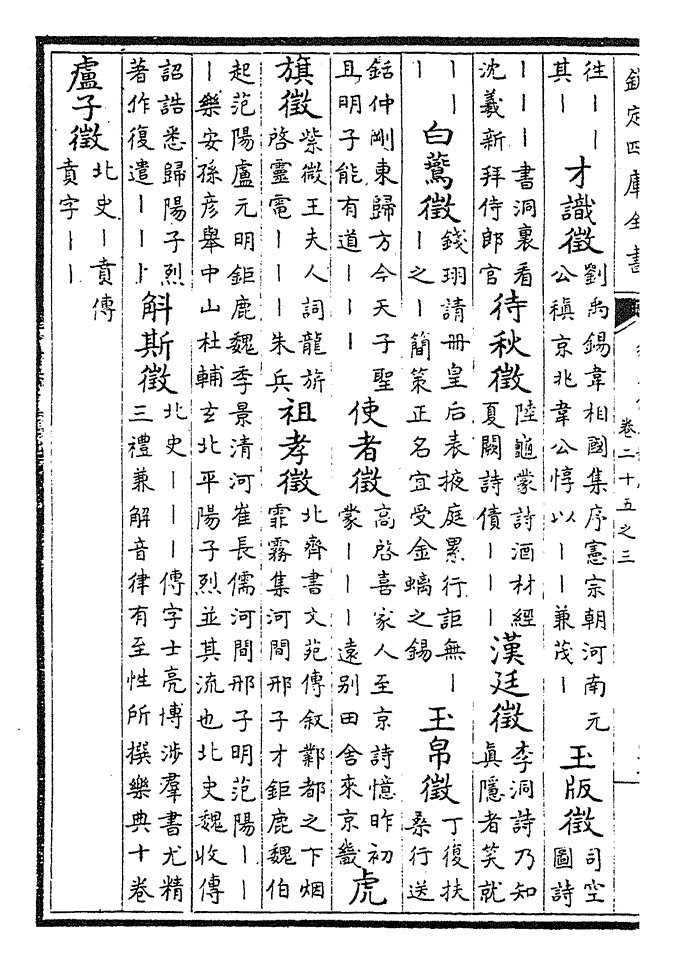 欽定四庫全書
卷二十五之三
往丨丨
其丨
才識徵
劉禹錫韋相國集序憲宗朝河南元
公稹京兆韋公惇以丨丨兼茂丨
玉版徵
司空
圖詩
丨丨丨書洞裏看
沈羲新拜侍郎官
待秋徵
陸龜蒙詩酒材經
夏闕詩債丨丨丨
漢廷徵
李洞詩乃知
眞隱者笑就
丨丨
丨
白鷰徵
錢珝請册皇后表掖庭累行詎無丨
丨之丨簡策正名宜受金螭之錫
玉帛徵
丁復扶
桑行送
銛仲剛東歸方今天子聖
且明子能有道丨丨丨
使者徵
高啓喜家人至京詩憶昨初
蒙丨丨丨遠别田舍來京畿
虎
旗徵
紫微王夫人詞龍旂
啓靈電丨丨丨朱兵
祖孝徵
北齊書文苑傳叙鄴都之下烟
霏霧集河間邢子才鉅鹿魏伯
起范陽盧元明鉅鹿魏季景清河崔長儒河間邢子明范陽丨丨
丨樂安孫彦舉中山杜輔玄北平陽子烈並其流也北史魏收傳
詔誥悉歸陽子烈
著作復遣丨丨丨
斛斯徵
北史丨丨丨傳字士亮博涉羣書尤精
三禮兼解音律有至性所撰樂典十卷
盧子徵
北史丨賁傳
賁字丨丨